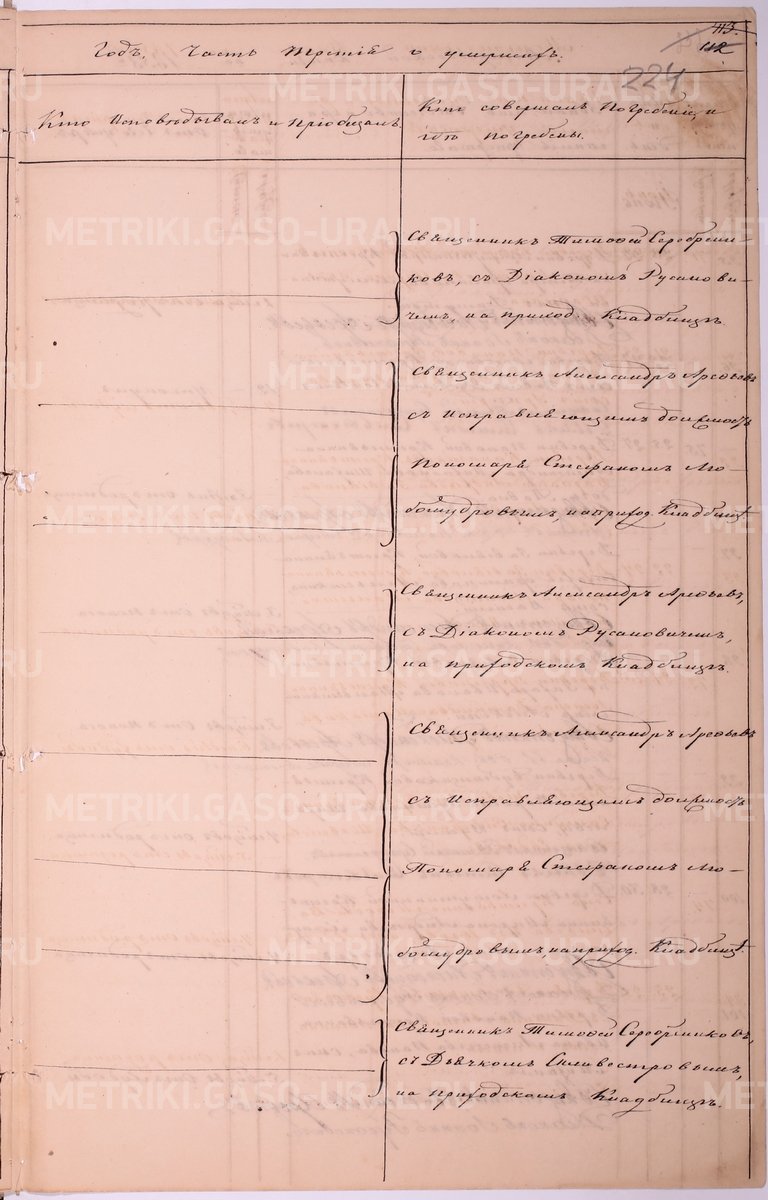 113.
112
224
Годъ, Часть Третія о умершихъ.
Кто Исповѣдывалъ и Пріобщалъ.
Кто совершалъ Погребеніе и
гдѣ погребены.
Священникъ Тимоѳей Серебрени-
ковъ, съ Діакономъ Русанови-
чемъ, на приход. Кладбищѣ.
Священникъ Александръ Арефьевъ
съ Исправляющимъ должность
Пономаря Стефаномъ Лю-
бомудровымъ, на приход. Кладбищѣ
Священникъ Александръ Арефьевъ,
съ Діакономъ Русановичемъ,
на приходскомъ Кладбищѣ.
Священникъ Александръ Арефьевъ
съ Исправляющимъ должность
Пономаря Стефаномъ Лю-
бомудровымъ, на приход. Кладбищѣ.
Священникъ Тимоѳей Серебрениковъ,
съ Дьячкомъ Силивестровымъ,
на приходскомъ Кладбищѣ.
METRIKI.GASO-URAL.RU